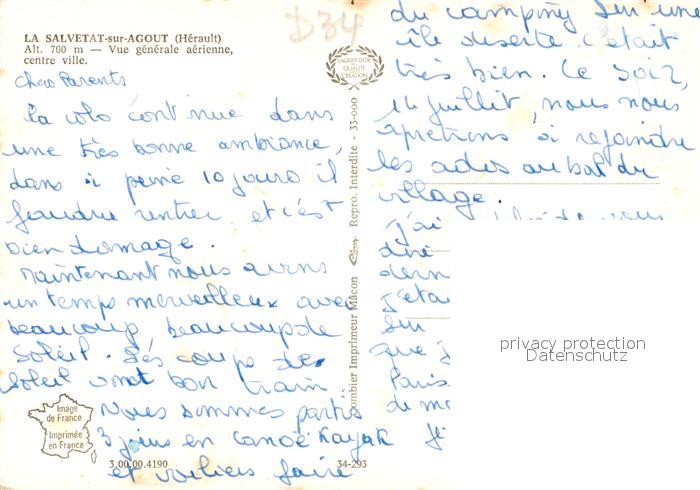 LA SALVETAT-sur-AGOUT (Hérault)
Alt. 700 m — Vue générale aérienne,
centre ville.
D34
Chers Parents
La colo continue dans
une très bonne ambiance,
dans à peine 10 jours il
faudra rentrer et c'est
bien domage.
Maintenant nous avons
un temps merveilleux avec
beaucoup beaucoup de
Soleil. Les coups de
Soleil vont bon train
Nous sommes partis
3 jours en canoë Kayak
et voiliers faire
du camping sur une
île deserte c'était
très bien. Ce soir,
14 juillet, nous nous
apretons à rejoindre
les ados au bal du
village.
j'ai
diné
dern
j'étai
sur
que j
Paris
de mo
Combier Imprimeur Mâcon
Repro. Interdite - 33-000
Image
de France
Imprimée
en France
3.00.00.4190
34-293
privacy protection
Datenschutz